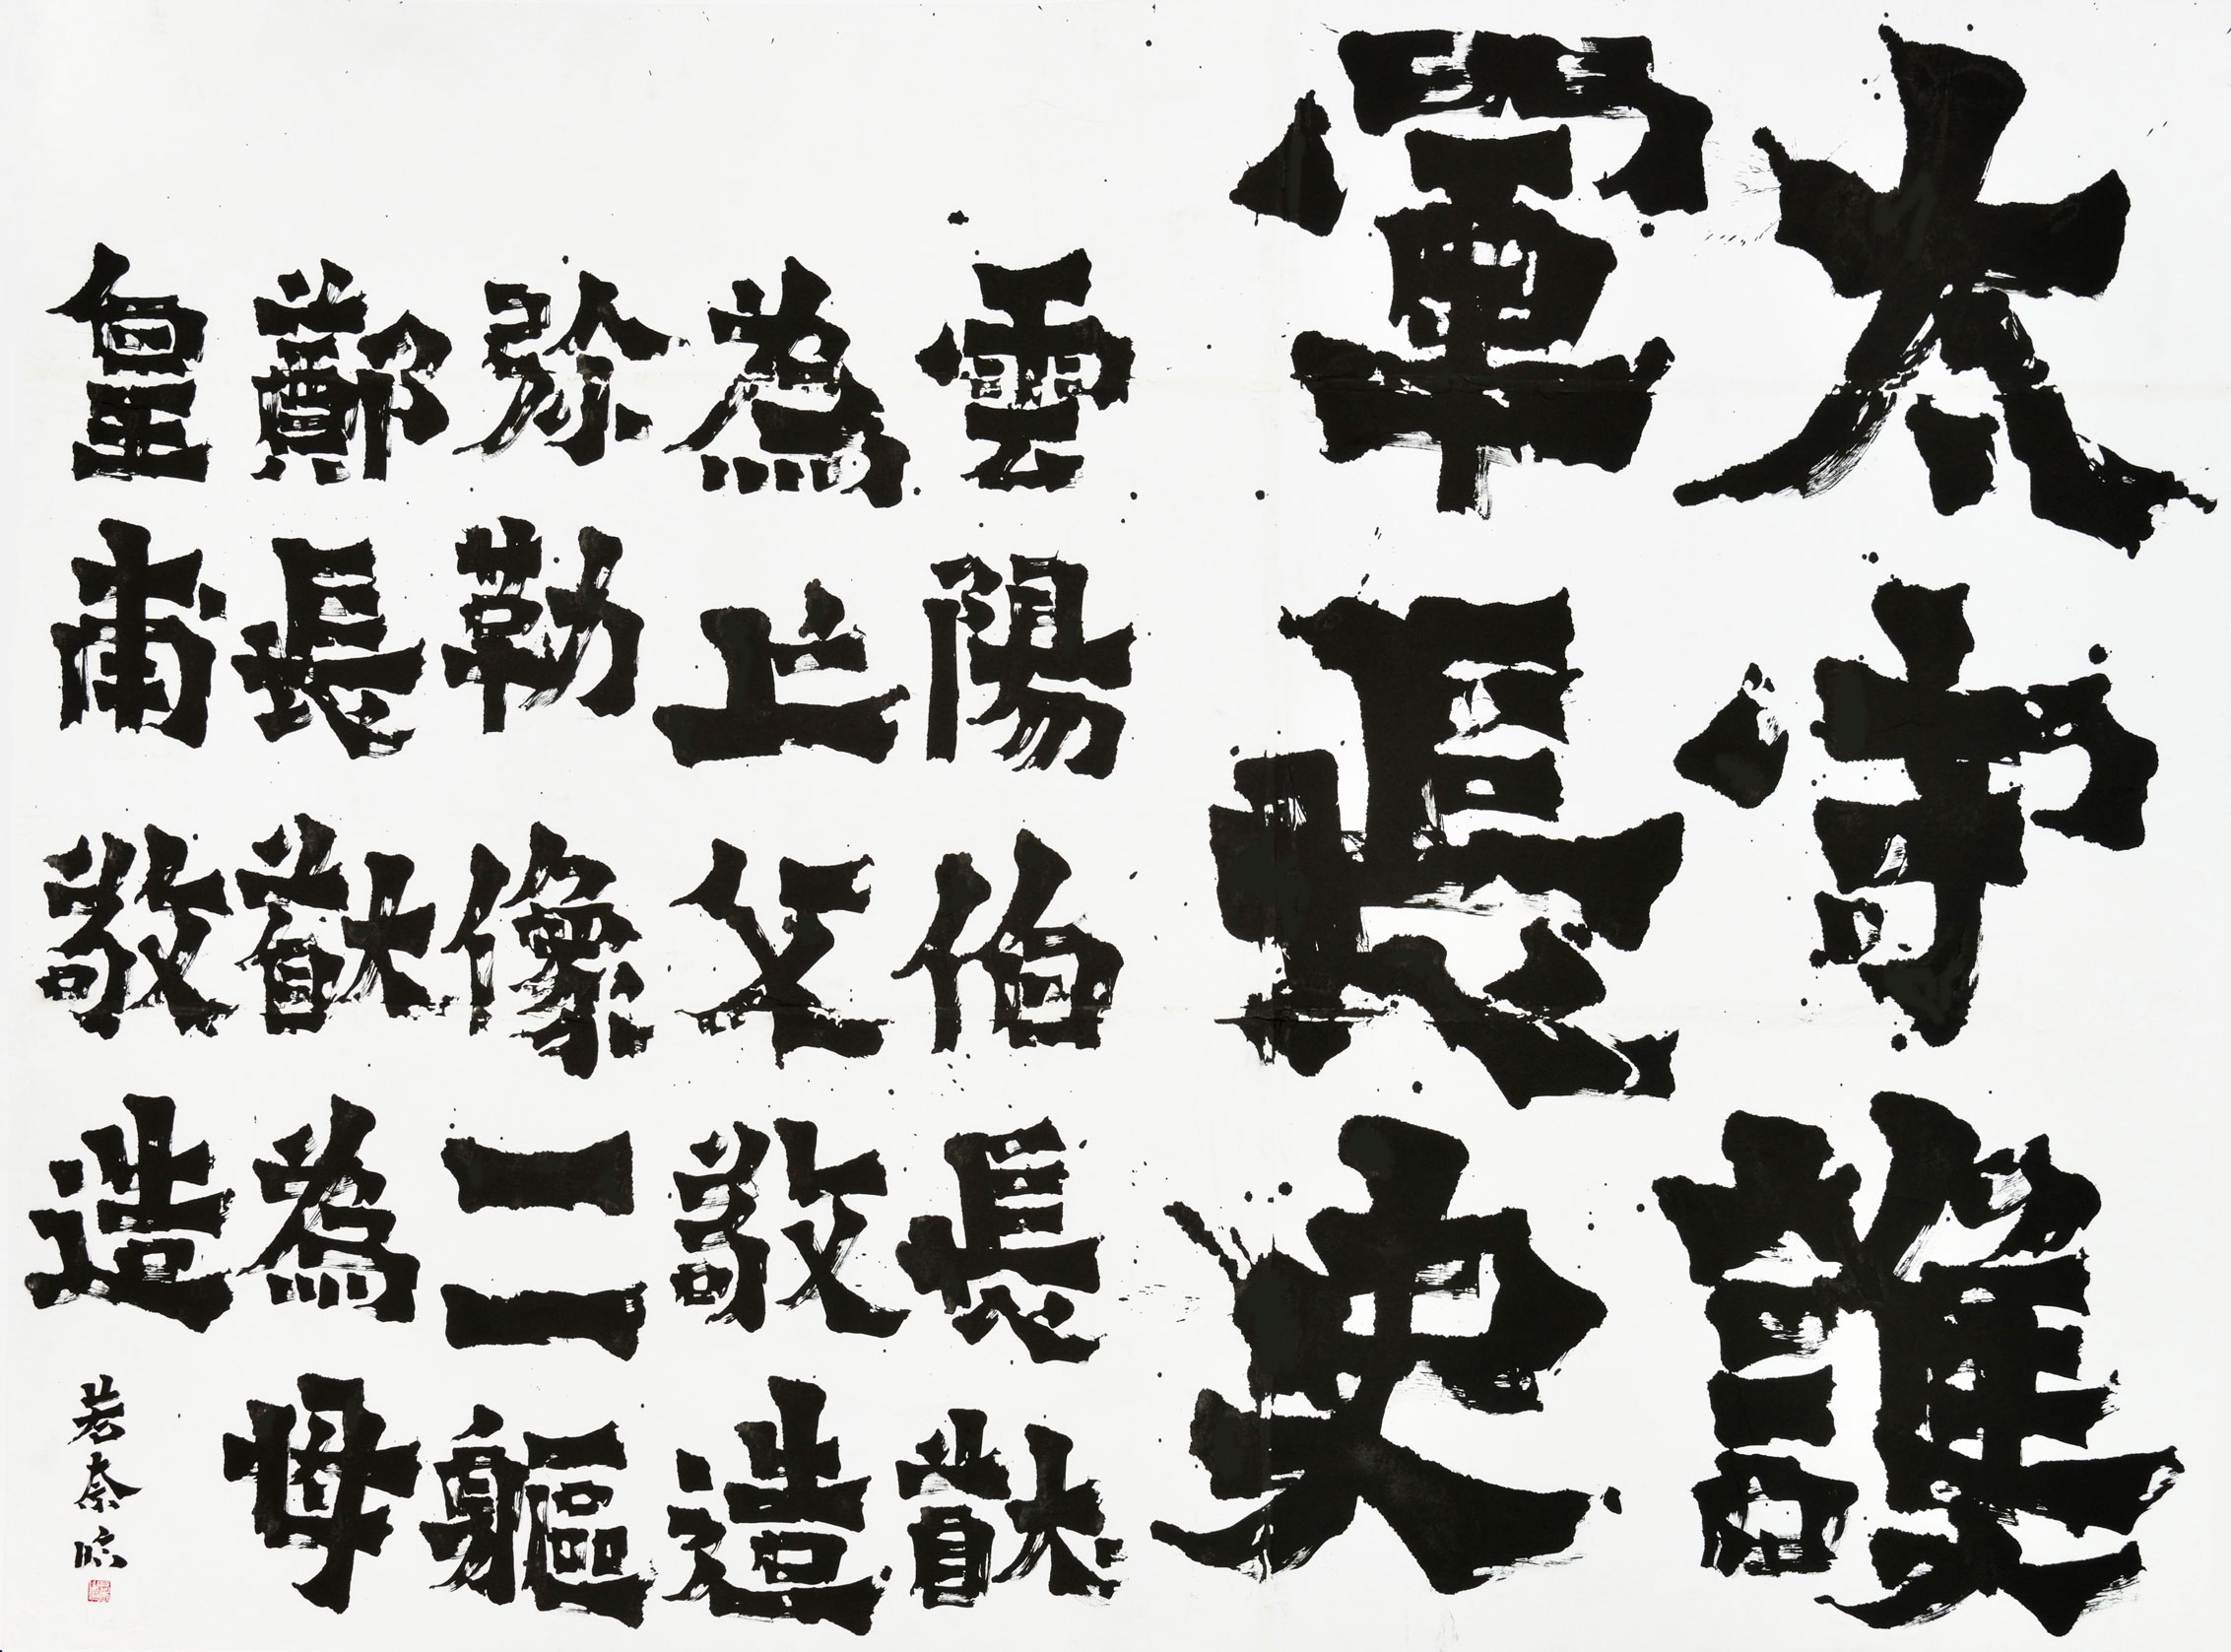 太守護
軍長史
雲陽伯長猷
為亡父敬造
弥勒像二軀
鄭長猷為母
皇甫敬造
若奈臨